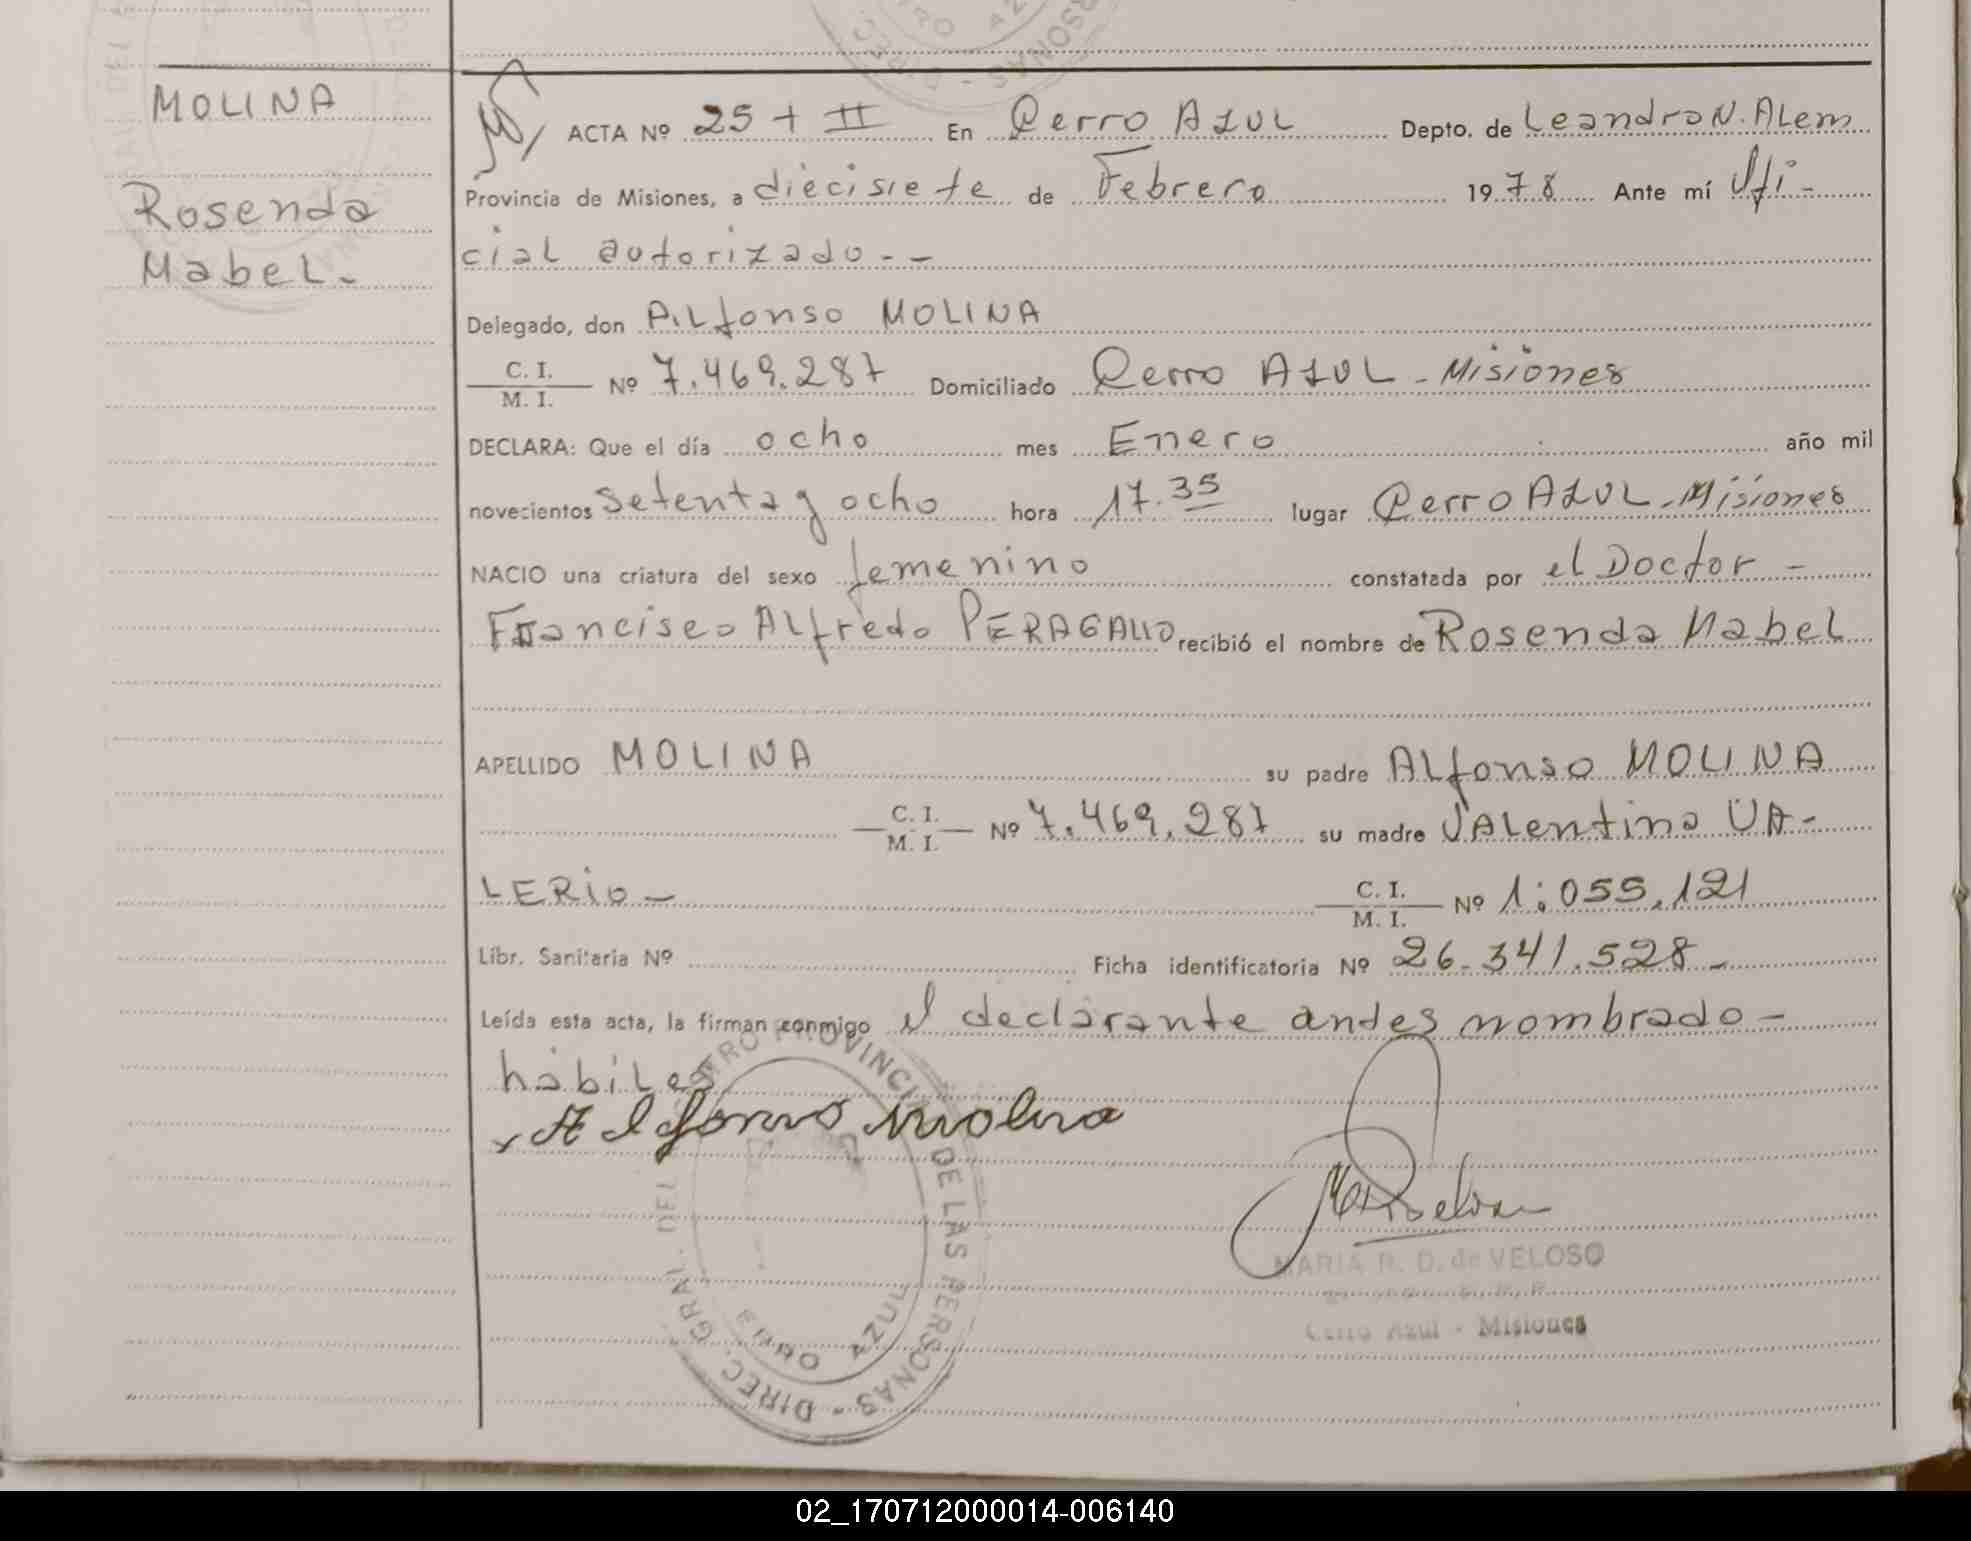 MOLINA
Rosenda
Mabel.-
ACTA Nº 25 + II En Cerro AZUL Depto. de Leandro N. ALem
Provincia de Misiones, a diecisiete de Febrero 1978 Ante mí Ofi-
cial autorizado - -
Delegado, don ALfonso MOLINA
C. I.
M. I. Nº 7.469.287 Domiciliado Cerro AZUL - Misiones
DECLARA: Que el día ocho mes Enero año mil
novecientos setenta y ocho hora 17.35 lugar Cerro AZUL - Misiones
NACIO una criatura del sexo femenino constatada por el Doctor -
Francisco ALfredo PERAGALLO recibió el nombre de Rosenda Mabel
APELLIDO MOLINA su padre ALfonso MOLINA
C. I.
M. I. Nº 7.469.287 su madre VALentina VA-
LERIO - C. I.
M. I. Nº 1:055.121
Libr. Sanitaria Nº Ficha identificatoria Nº 26.341.528 -
Leída esta acta, la firman conmigo el declarante antes nombrado -
hábiles
Alfonso Molina
DIREC. GRAL. DEL REGISTRO PROVINCIAL DE LAS PERSONAS -
CERRO AZUL
MARIA R. D. de VELOSO
Cerro Azul - Misiones
02_170712000014-006140